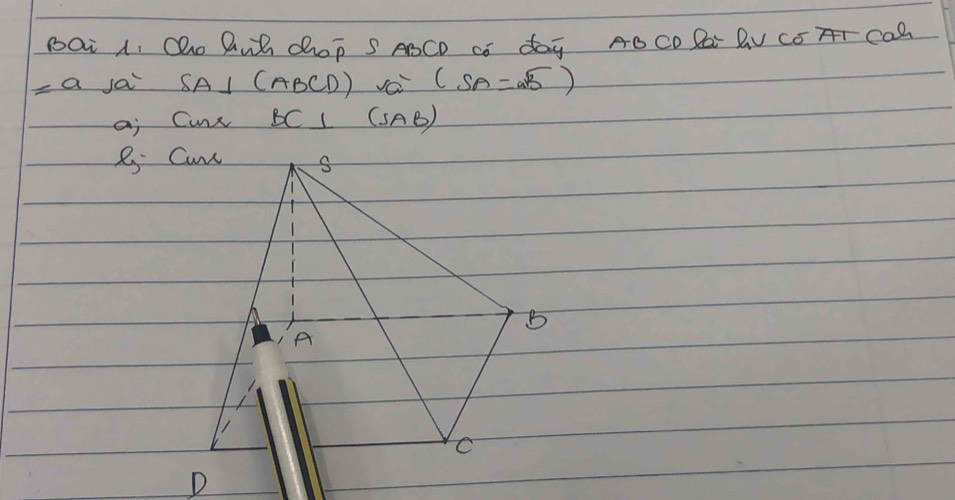 Bài 1. Cho hình chóp S ABCD có đáy ABCD là hv có cạh
= a và SA ⊥ (ABCD) và (SA = a√3)
a; Cm BC ⊥ (SAB)
b; Cm
S
B
A
C
D